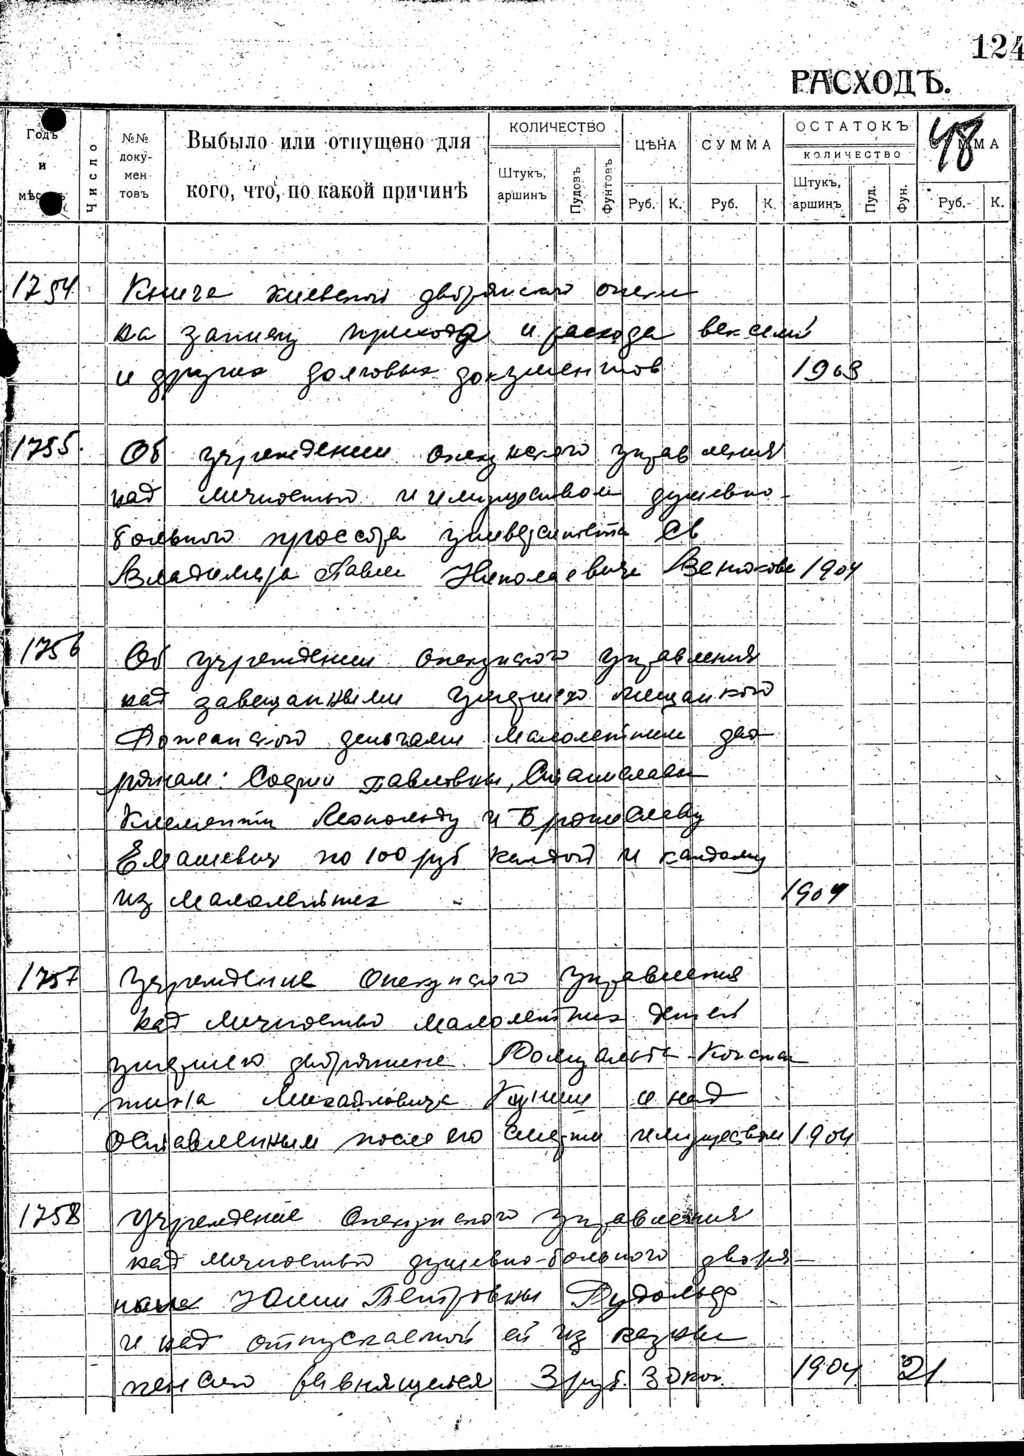 124
РАСХОДЪ.
Годъ и мѣсяцъ
Число
№№ документовъ
Выбыло или отпущено для
кого, что, по какой причинѣ
КОЛИЧЕСТВО
Штукъ, аршинъ
Пудовъ
Фунтовъ
ЦѢНА
Руб. К.
СУММА
Руб. К.
ОСТАТОКЪ
КОЛИЧЕСТВО
Штукъ, аршинъ
Пуд.
Фун.
48
Руб. К.
1754. Книга киевской дворянской опеки
на записку прихода и расхода векселей
и других долговых документов 1903
1755. Об учреждении опекунского управления
над личностью и имуществом душевно-
больного проссора университета Св
Владимира Павла Николаевича Венюкова 1904
1756 Об учреждении опекунского управления
над завещанными умершего мещанкого
деньгами малолетним дво-
рянам: Софии Павловны, Станиславы
Клементи Леопольду и Брониславу
Емашевич по 100 руб каждой и каждому
из малолетних 1904
1757 Учреждение опекунского управления
над личностью малолетних детей
умершего дворянина Ромуальта-Констан
тина Михайловича и над
оставленным после его смерти имуществом 1904
1758 Учреждение опекунского управления
над личностью душевно-больного дворя-
нина Юлии Петровны Рудольф
и над отпускаемой ей из казны
пенсию равнящемся 3 руб. 30 коп. 1904 21